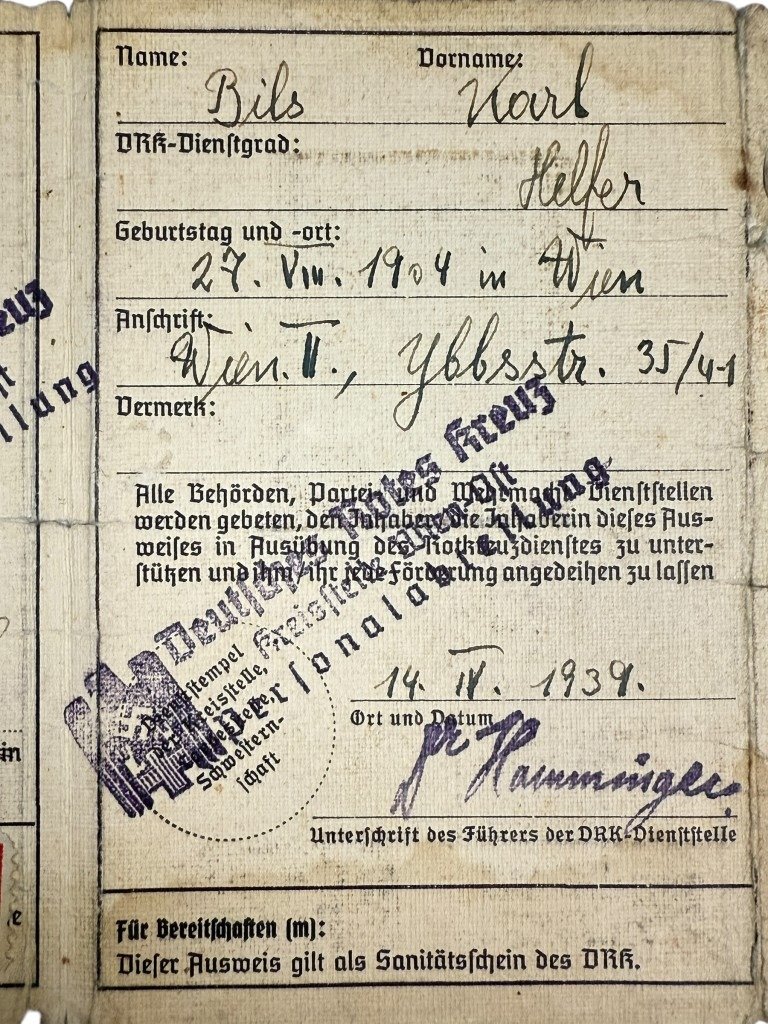 Name: Vorname:
Bils Karl
DRK-Dienstgrad:
Helfer
Geburtstag und -ort:
27. VIII. 1904 in Wien
Anschrift:
Wien. II., Ybbsstr. 35/41
Vermerk:
Alle Behörden, Partei- und Wehrmacht-Dienststellen
werden gebeten, den Inhaber, die Inhaberin dieses Aus-
weises in Ausübung des Rotkreuzdienstes zu unter-
stützen und ihm/ihr jede Förderung angedeihen zu lassen
Deutsches Rotes Kreuz
Kreisstelle Wien-Ost
Personalabteilung
Dienststempel
der Kreisstelle,
Schwestern-
schaft
14. IV. 1939.
Ort und Datum
Dr Hamminger
Unterschrift des Führers der DRK-Dienststelle
Für Bereitschaften (m):
Dieser Ausweis gilt als Sanitätsschein des DRK.
euz
llung
in
e